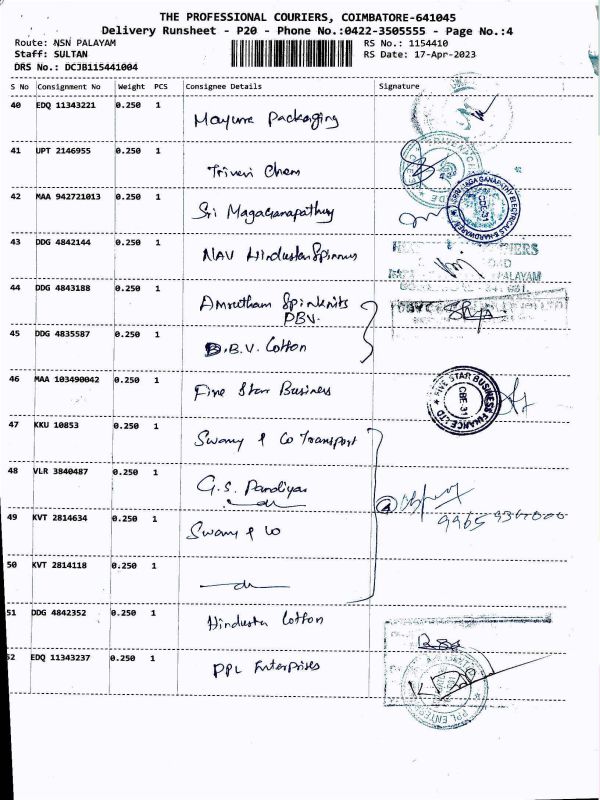 THE PROFESSIONAL COURIERS, COIMBATORE-641045
Delivery Runsheet - P20 - Phone No.:0422-3505555 - Page No.:4
Route: NSN PALAYAM
RS No.: 1154410
Staff: SULTAN
RS Date: 17-Apr-2023
DRS No.: DCJB115441004
S No Consignment No Weight PCS Consignee Details Signature
40 EDQ 11343221 0.250 1
Mayura Packaging
41 UPT 2146955 0.250 1
Triveni Chem
42 MAA 942721013 0.250 1
Sri Magaganapathy
SRI MAGA GANAPATHY ELECTRICALS & HARDWARES
CBE-31
43 DDG 4842144 0.250 1
NAV Hindustan Spinners
PALAYAM
44 DDG 4843188 0.250 1
Amrutham Spinknits
PBV.
45 DDG 4835587 0.250 1
B.B.V. Cotton
46 MAA 103490042 0.250 1
Five Star Business
FIVE STAR BUSINESS FINANCE LTD
CBE-31
47 KKU 10853 0.250 1
Swamy & Co Transport
48 VLR 3840487 0.250 1
G.S. Pandiyan
49 KVT 2814634 0.250 1
Swamy & Co
50 KVT 2814118 0.250 1
51 DDG 4842352 0.250 1
Hindustan Cotton
52 EDQ 11343237 0.250 1
PPL Enterprises
PPL ENTER